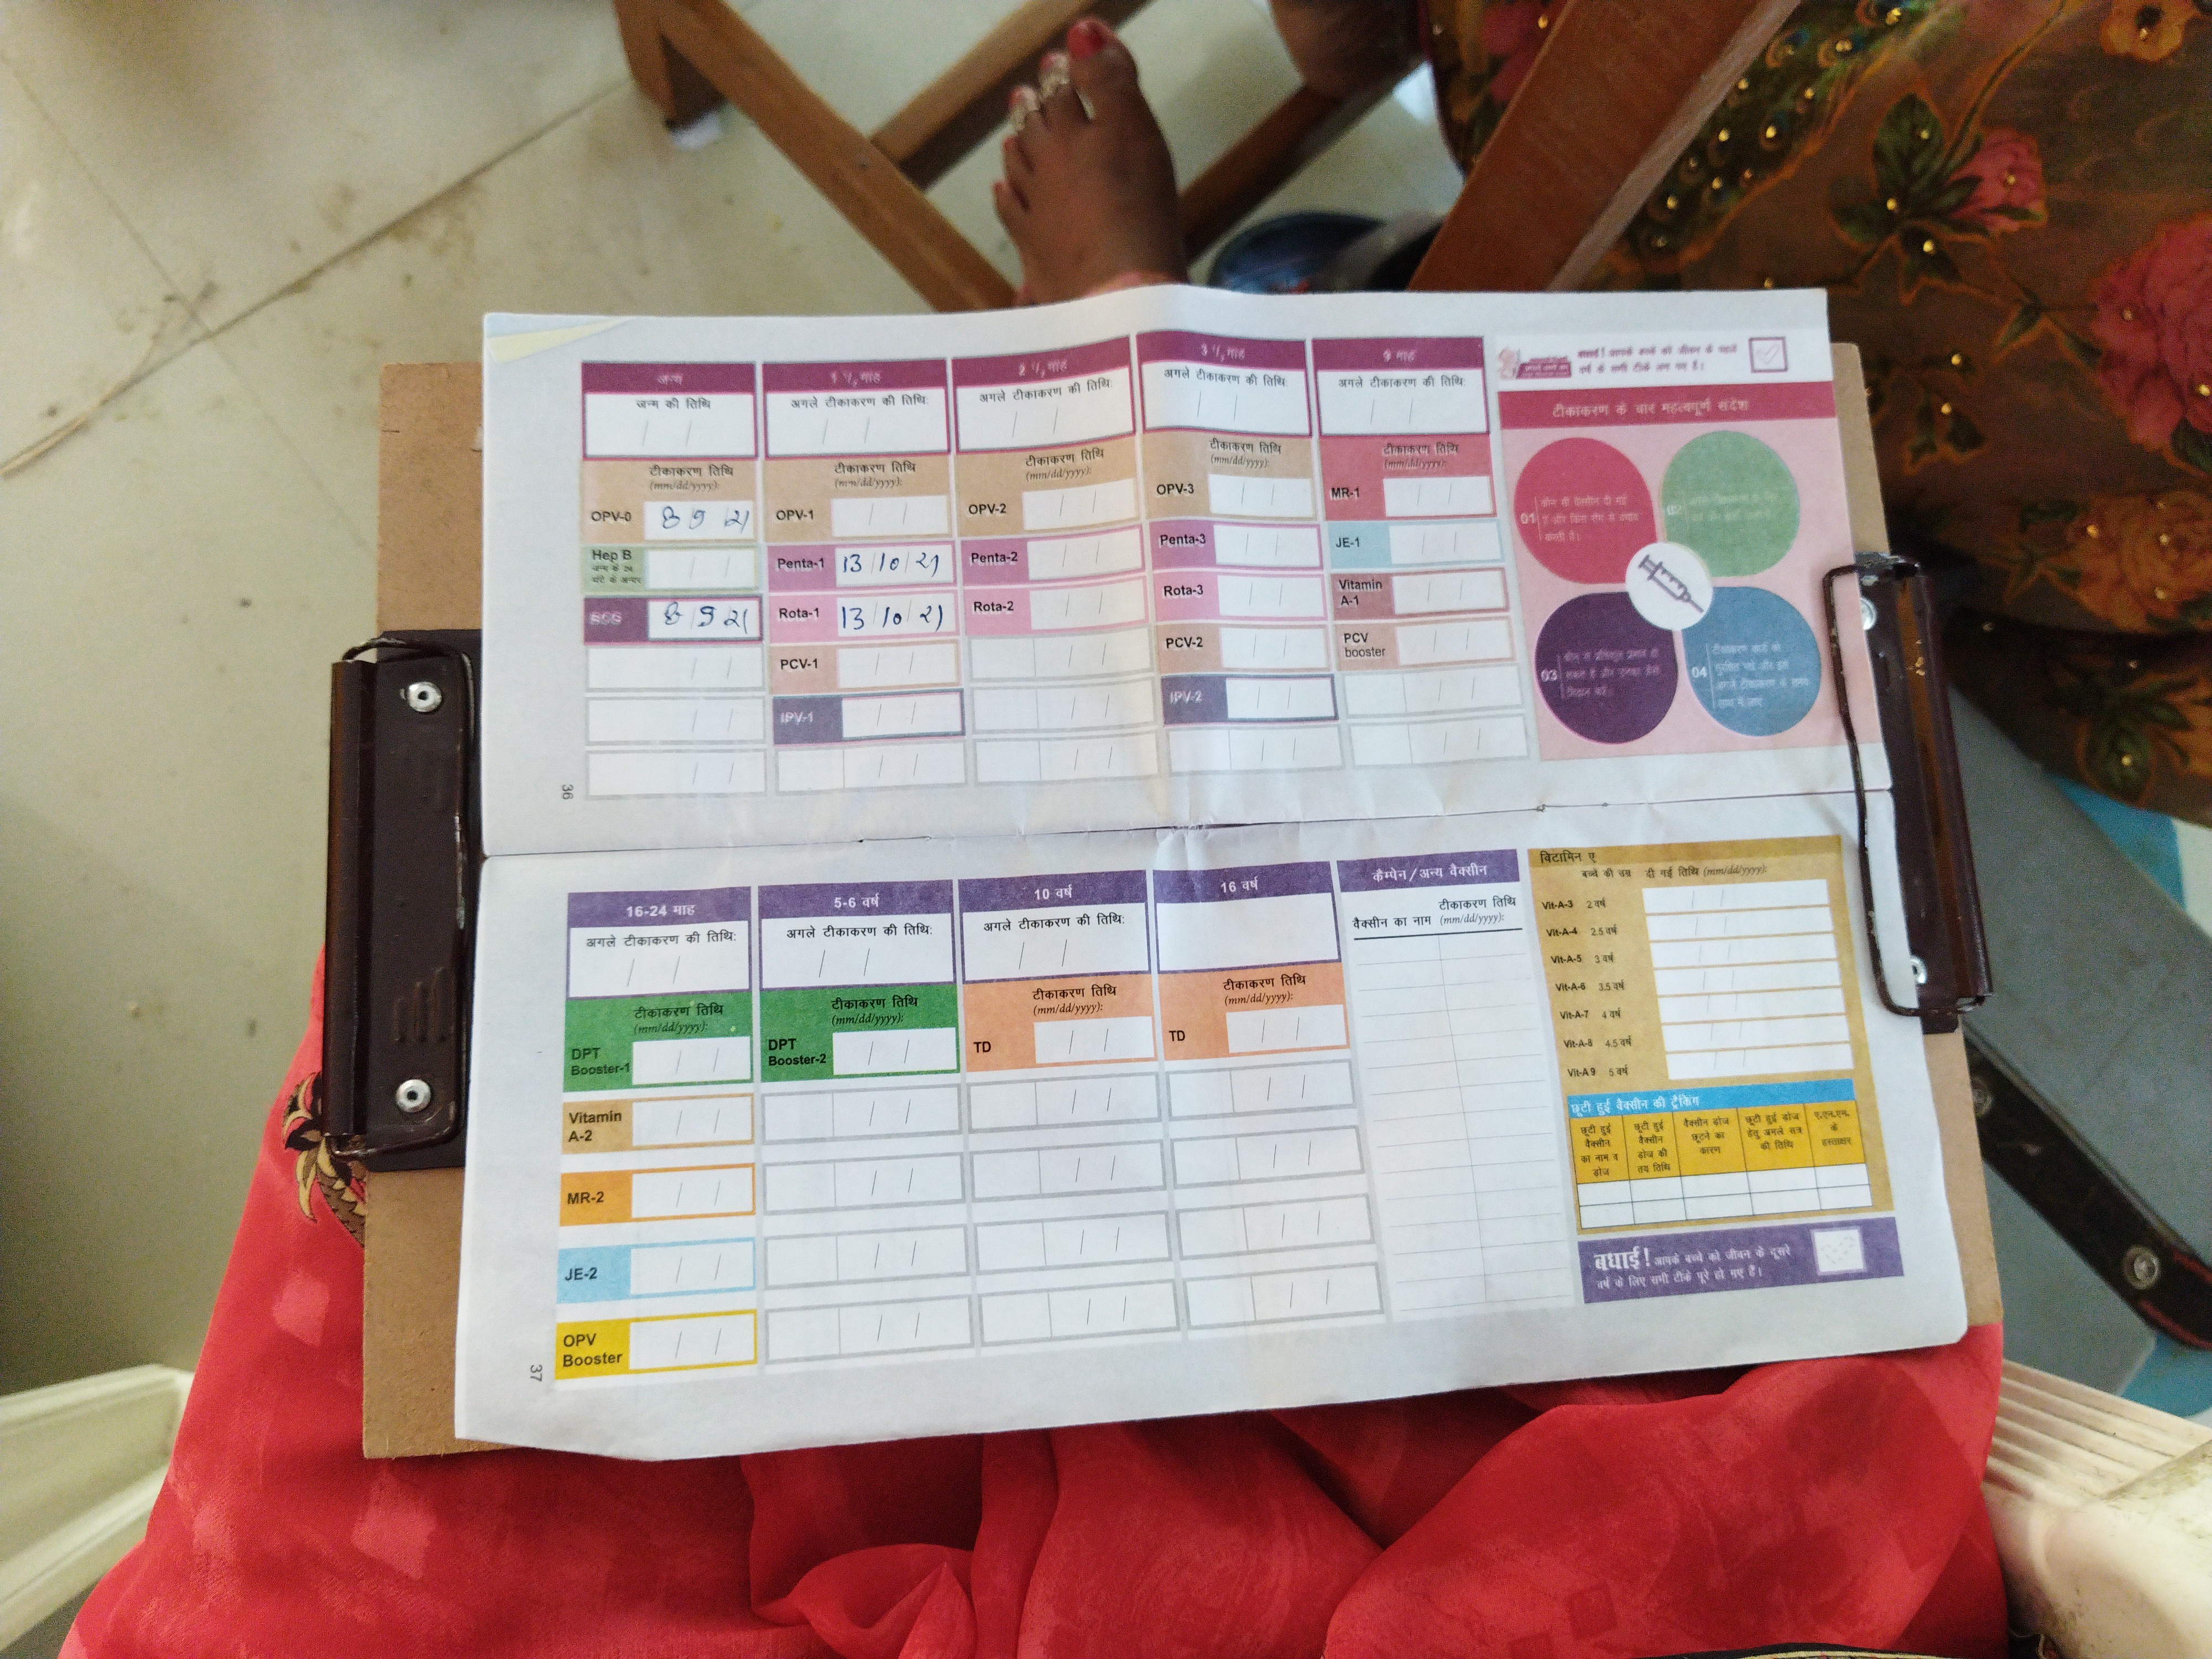 जन्म
जन्म की तिथि
टीकाकरण तिथि
(mm/dd/yyyy):
OPV-0 8 9 21
Hep B
जन्म के 24
घंटे के अन्दर
BCG 8 9 21
1 ½ माह
अगले टीकाकरण की तिथि:
टीकाकरण तिथि
(mm/dd/yyyy):
OPV-1
Penta-1 13/10/21
Rota-1 13/10/21
PCV-1
IPV-1
2 ½ माह
अगले टीकाकरण की तिथि:
टीकाकरण तिथि
(mm/dd/yyyy):
OPV-2
Penta-2
Rota-2
3 ½ माह
अगले टीकाकरण की तिथि:
टीकाकरण तिथि
(mm/dd/yyyy):
OPV-3
Penta-3
Rota-3
PCV-2
IPV-2
9 माह
अगले टीकाकरण की तिथि:
टीकाकरण तिथि
(mm/dd/yyyy):
MR-1
JE-1
Vitamin
A-1
PCV
booster
बधाई! आपके बच्चे को जीवन के पहले
वर्ष के सभी टीके लग गए हैं।
टीकाकरण के चार महत्वपूर्ण संदेश
01
02
03
04
36
16-24 माह
अगले टीकाकरण की तिथि:
टीकाकरण तिथि
(mm/dd/yyyy):
DPT
Booster-1
Vitamin
A-2
MR-2
JE-2
OPV
Booster
5-6 वर्ष
अगले टीकाकरण की तिथि:
टीकाकरण तिथि
(mm/dd/yyyy):
DPT
Booster-2
10 वर्ष
अगले टीकाकरण की तिथि:
टीकाकरण तिथि
(mm/dd/yyyy):
TD
16 वर्ष
टीकाकरण तिथि
(mm/dd/yyyy):
TD
कैम्पेन/अन्य वैक्सीन
टीकाकरण तिथि
वैक्सीन का नाम (mm/dd/yyyy):
विटामिन ए
बच्चे की उम्र दी गई तिथि (mm/dd/yyyy):
Vit-A-3 2 वर्ष
Vit-A-4 2.5 वर्ष
Vit-A-5 3 वर्ष
Vit-A-6 3.5 वर्ष
Vit-A-7 4 वर्ष
Vit-A-8 4.5 वर्ष
Vit-A 9 5 वर्ष
छूटी हुई वैक्सीन की ट्रैकिंग
छूटी हुई
वैक्सीन
का नाम व
डोज
छूटी हुई
वैक्सीन
डोज की
तय तिथि
वैक्सीन डोज
छूटने का
कारण
छूटी हुई डोज
हेतु अगले सत्र
की तिथि
ए.एन.एम.
के
हस्ताक्षर
बधाई! आपके बच्चे को जीवन के दूसरे
वर्ष के लिए सभी टीके पूरे हो गए हैं।
37